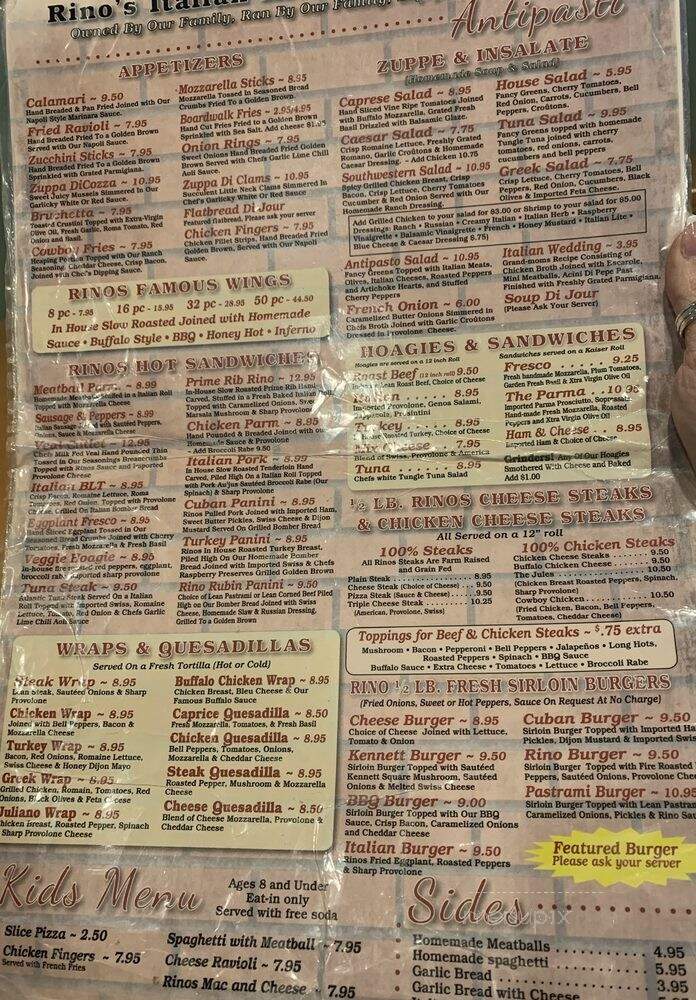 Rino's Italian
Owned By Our Family, Ran By Our Family,
Antipasti
APPETIZERS
Calamari ~ 9.50
Hand Breaded & Pan Fried Joined with Our
Napoli Style Marinara Sauce.
Fried Ravioli ~ 7.95
Hand Breaded Fried To a Golden Brown
Served with Our Napoli Sauce.
Zucchini Sticks ~ 7.95
Hand Breaded Fried To a Golden Brown
Sprinkled with Grated Parmigiana.
Zuppa DiCozza ~ 10.95
Sweet Juicy Mussels Simmered In Our
Garlicky White Or Red Sauce.
Bruchetta ~ 7.95
Toasted Crustini Topped with Extra-Virgin
Olive Oil, Fresh Garlic, Roma Tomato, Red
Onion and Basil.
Cowboy Fries ~ 7.95
Heaping Portion Topped with Our Ranch
Seasoning, Cheddar Cheese, Crisp Bacon,
Joined with Chef's Dipping Sauce.
Mozzarella Sticks ~ 8.95
Mozzarella Tossed In Seasoned Bread
Crumbs Fried To a Golden Brown.
Boardwalk Fries ~ 2.95/4.95
Hand Cut Fries Fried to a Golden Brown
Sprinkled with Sea Salt. Add cheese $1.25
Onion Rings ~ 7.95
Sweet Onions Hand Breaded Fried Golden
Brown Served with Chefs Garlic Lime Chili
Aoli Sauce.
Zuppa Di Clams ~ 10.95
Succulent Little Neck Clams Simmered In
Chef's Garlicky White Or Red Sauce
Flatbread Di Jour
Featured flatbread. Please ask your server
Chicken Fingers ~ 7.95
Chicken Fillet Strips, Hand Breaded Fried
Golden Brown, Served with Our Napoli
Sauce.
RINOS FAMOUS WINGS
8 pc - 7.95 16 pc - 15.95 32 pc - 28.95 50 pc - 44.50
In House Slow Roasted Joined with Homemade
Sauce • Buffalo Style • BBQ • Honey Hot • Inferno
RINOS HOT SANDWICHES
Meatball Parm. ~ 8.99
Homemade Meatballs Served in a Italian Roll
Topped with Mozzarella Cheese
Sausage & Peppers ~ 8.99
Italian Sausage Joined with Sautéed Peppers,
Onions, Sauce & Mozzarella Cheese
12.95
Chefs Milk Fed Veal Hand Pounded Thin
Tossed In Our Seasonings Breadcrumbs
Topped with Rinos Sauce and Imported
Provolone Cheese
Italian BLT ~ 8.95
Crisp Bacon, Romaine Lettuce, Roma
Tomatoes, Red Onion, Topped with Provolone
Cheese, Grilled On Italian Bomber Bread
Eggplant Fresco ~ 8.95
Hand Sliced Eggplant Tossed In Our
Seasoned Bread Crumbs Joined with Cherry
Tomatoes, Fresh Mozzarella & Fresh Basil
Veggie Hoagie ~ 8.95
In-house fire roasted red peppers, eggplant,
broccoli rabe, imported sharp provolone
Tuna Steak ~ 9.50
Atlantic Tuna Steak Served On a Italian
Roll Topped with Imported Swiss, Romaine
Lettuce, Tomato, Red Onion & Chefs Garlic
Lime Chili Aoli Sauce
Prime Rib Rino ~ 12.95
In-House Slow Roasted Prime Rib Hand
Carved, Stuffed in a Fresh Baked Italian Roll,
Topped with Caramelized Onions, Sweet
Marsala Mushroom & Sharp Provolone
Chicken Parm ~ 8.95
Hand Pounded & Breaded Joined with our
Homemade Sauce & Provolone
- Add Broccoli Rabe 9.50
Italian Pork ~ 8.99
In House Slow Roasted Tenderloin Hand
Carved, Piled High On a Italian Roll Topped
with Pork Au'jus Sautéed Broccoli Rabe (Our
Spinach) & Sharp Provolone
Cuban Panini ~ 8.95
Rinos Pulled Pork Joined with Imported Ham,
Sweet Butter Pickles, Swiss Cheese & Dijon
Mustard Served On Grilled Bomber Bread
Turkey Panini ~ 8.95
Rinos In House Roasted Turkey Breast,
Piled High On Our Homemade Bomber
Bread Joined with Imported Swiss & Chefs
Raspberry Preserves Grilled Golden Brown
Rino Rubin Panini ~ 9.50
Choice of Lean Pastrami or Lean Corned Beef Piled
High on Our Bomber Bread Joined with Swiss
Cheese, Homemade Slaw & Russian Dressing,
Grilled To a Golden Brown
WRAPS & QUESADILLAS
Served On a Fresh Tortilla (Hot or Cold)
Steak Wrap ~ 8.95
Lean Steak, Sautéed Onions & Sharp
Provolone
Chicken Wrap ~ 8.95
Joined with Bell Peppers, Bacon &
Mozzarella Cheese
Turkey Wrap ~ 8.95
Bacon, Red Onions, Romaine Lettuce,
Swiss Cheese & Honey Dijon Mayo
Greek Wrap ~ 8.95
Grilled Chicken, Romain, Tomatoes, Red
Onions, Black Olives & Feta Cheese
Juliano Wrap ~ 8.95
Chicken Breast, Roasted Pepper, Spinach
Sharp Provolone Cheese
Buffalo Chicken Wrap ~ 8.95
Chicken Breast, Bleu Cheese & Our
Famous Buffalo Sauce
Caprice Quesadilla ~ 8.50
Fresh Mozzarella, Tomatoes, & Fresh Basil
Chicken Quesadilla ~ 8.95
Bell Peppers, Tomatoes, Onions,
Mozzarella & Cheddar Cheese
Steak Quesadilla ~ 8.95
Roasted Pepper, Mushroom & Mozzarella
Cheese
Cheese Quesadilla ~ 8.50
Blend of Cheese Mozzarella, Provolone &
Cheddar Cheese
Kids Menu
Ages 8 and Under
Eat-in only
Served with free soda
Slice Pizza ~ 2.50
Chicken Fingers ~ 7.95
Served with French Fries
Spaghetti with Meatball ~ 7.95
Cheese Ravioli ~ 7.95
Rinos Mac and Cheese ~ 7.95
ZUPPE & INSALATE
(Homemade Soup & Salad)
Caprese Salad ~ 8.95
Hand Sliced Vine Ripe Tomatoes Joined
with Buffalo Mozzarella, Grated Fresh
Basil Drizzled with Balsamic Glaze.
Caesar Salad ~ 7.75
Crisp Romaine Lettuce, Freshly Grated
Romano, Garlic Croûtons & Homemade
Caesar Dressing. - Add Chicken 10.75
Southwestern Salad ~ 10.95
Spicy Grilled Chicken Breast, Crisp
Bacon, Crisp Lettuce, Cherry Tomatoes
Cucumber & Red Onion Served with Our
Homemade Ranch Dressing.
House Salad ~ 5.95
Fancy Greens, Cherry Tomatoes,
Red Onion, Carrots, Cucumbers, Bell
Peppers, Croûtons.
Tuna Salad ~ 9.95
Fancy Greens topped with homemade
Tungle Tuna Joined with cherry
tomatoes, red onions, carrots,
cucumbers and bell peppers
Greek Salad ~ 7.75
Crisp Lettuce, Cherry Tomatoes, Bell
Peppers, Red Onion, Cucumbers, Black
Olives & Imported Feta Cheese.
Add Grilled Chicken to your salad for $3.00 or Shrimp to your salad for $5.00
Dressings: Ranch • Russian • Creamy Italian • Italian Herb • Raspberry
Vinaigrette • Balsamic Vinaigrette • French • Honey Mustard • Italian Lite •
Blue Cheese & Caesar Dressing $.75)
Antipasto Salad ~ 10.95
Fancy Greens Topped with Italian Meats,
Olives, Italian Cheeses, Roasted Peppers
and Artichoke Hearts, and Stuffed
Cherry Peppers
French Onion ~ 6.00
Caramelized Butter Onions Simmered In
Chefs Broth Joined with Garlic Croûtons
Dressed in Provolone Cheese.
Italian Wedding ~ 3.95
Grand-moms Recipe Consisting of
Chicken Broth Joined with Escarole,
Mini Meatballs, Acini Di Pepe Past
Finished with Freshly Grated Parmigiana.
Soup Di Jour
(Please Ask Your Server)
HOAGIES & SANDWICHES
Hoagies are served on a 12 inch Roll
Roast Beef (12 inch roll) 9.50
Lean Roast Beef, Choice of Cheese
Italian . . . . . 8.95
Imported Provolone, Genoa Salami,
Capacola, Prosintini
Turkey . . . . . 8.95
In House Roasted Turkey, Choice of Cheese
Mix Cheese . . . . 7.95
Blend of Swiss, Provolone & America
Tuna . . . . . 8.95
Chefs white Tungle Tuna Salad
Sandwiches served on a Kaiser Roll
Fresco . . . . . 9.25
Fresh handmade Mozzarella, Plum Tomatoes,
Garden Fresh Basil & Xtra Virgin Olive Oil
The Parma . . 10.95
Imported Parma Prosciutto, Soprasata,
Hand-made Fresh Mozzarella, Roasted
Peppers and Xtra Virgin Olive Oil
Ham & Cheese . . 8.95
Imported Ham & Choice of Cheese
Grinders! Any Of Our Hoagies
Smothered With Cheese and Baked
Add $1.00
1/2 LB. RINOS CHEESE STEAKS
& CHICKEN CHEESE STEAKS
All Served on a 12" roll
100% Steaks
All Rinos Steaks Are Farm Raised
and Grain Fed
Plain Steak . . . . . 8.95
Cheese Steak (Choice of Cheese) . . 9.50
Pizza Steak (Sauce & Cheese) . . . . 9.50
Triple Cheese Steak . . . . . 10.25
(American, Provolone, Swiss)
100% Chicken Steaks
Chicken Cheese Steaks . . . . . 9.50
Buffalo Chicken Cheese . . . . . 9.50
The Jules . . . . . 10.50
(Chicken Breast Roasted Peppers, Spinach,
Sharp Provolone)
Cowboy Chicken . . . . . 10.50
(Fried Chicken, Bacon, Bell Peppers,
Tomatoes, Cheddar Cheese)
Toppings for Beef & Chicken Steaks ~ $.75 extra
Mushroom • Bacon • Pepperoni • Bell Peppers • Jalapeños • Long Hots,
Roasted Peppers • Spinach • BBQ Sauce
Buffalo Sauce • Extra Cheese • Tomatoes • Lettuce • Broccoli Rabe
RINO 1/2 LB. FRESH SIRLOIN BURGERS
(Fried Onions, Sweet or Hot Peppers, Sauce On Request At No Charge)
Cheese Burger ~ 8.95
Choice of Cheese Joined with Lettuce,
Tomato & Onion
Kennett Burger ~ 9.50
Sirloin Burger Topped with Sautéed
Kennett Square Mushroom, Sautéed
Onions & Melted Swiss Cheese
BBQ Burger ~ 9.00
Sirloin Burger Topped with Our BBQ
Sauce, Crisp Bacon, Caramelized Onions
and Cheddar Cheese
Italian Burger ~ 9.50
Rinos Fried Eggplant, Roasted Peppers
& Sharp Provolone Cheese
Cuban Burger ~ 9.50
Sirloin Burger Topped with Imported Ha
Pickles, Dijon Mustard & Imported Swis
Rino Burger ~ 9.50
Sirloin Burger Topped with Fire Roasted
Peppers, Sautéed Onions, Provolone Chee
Pastrami Burger ~ 10.95
Sirloin Burger Topped with Lean Pastram
Caramelized Onions, Pickles & Rino Sau
Featured Burger
Please ask your server
Sides
Homemade Meatballs . . . . . 4.95
Homemade spaghetti . . . . . 5.95
Garlic Bread . . . . . 3.95
Garlic Bread with Cheese